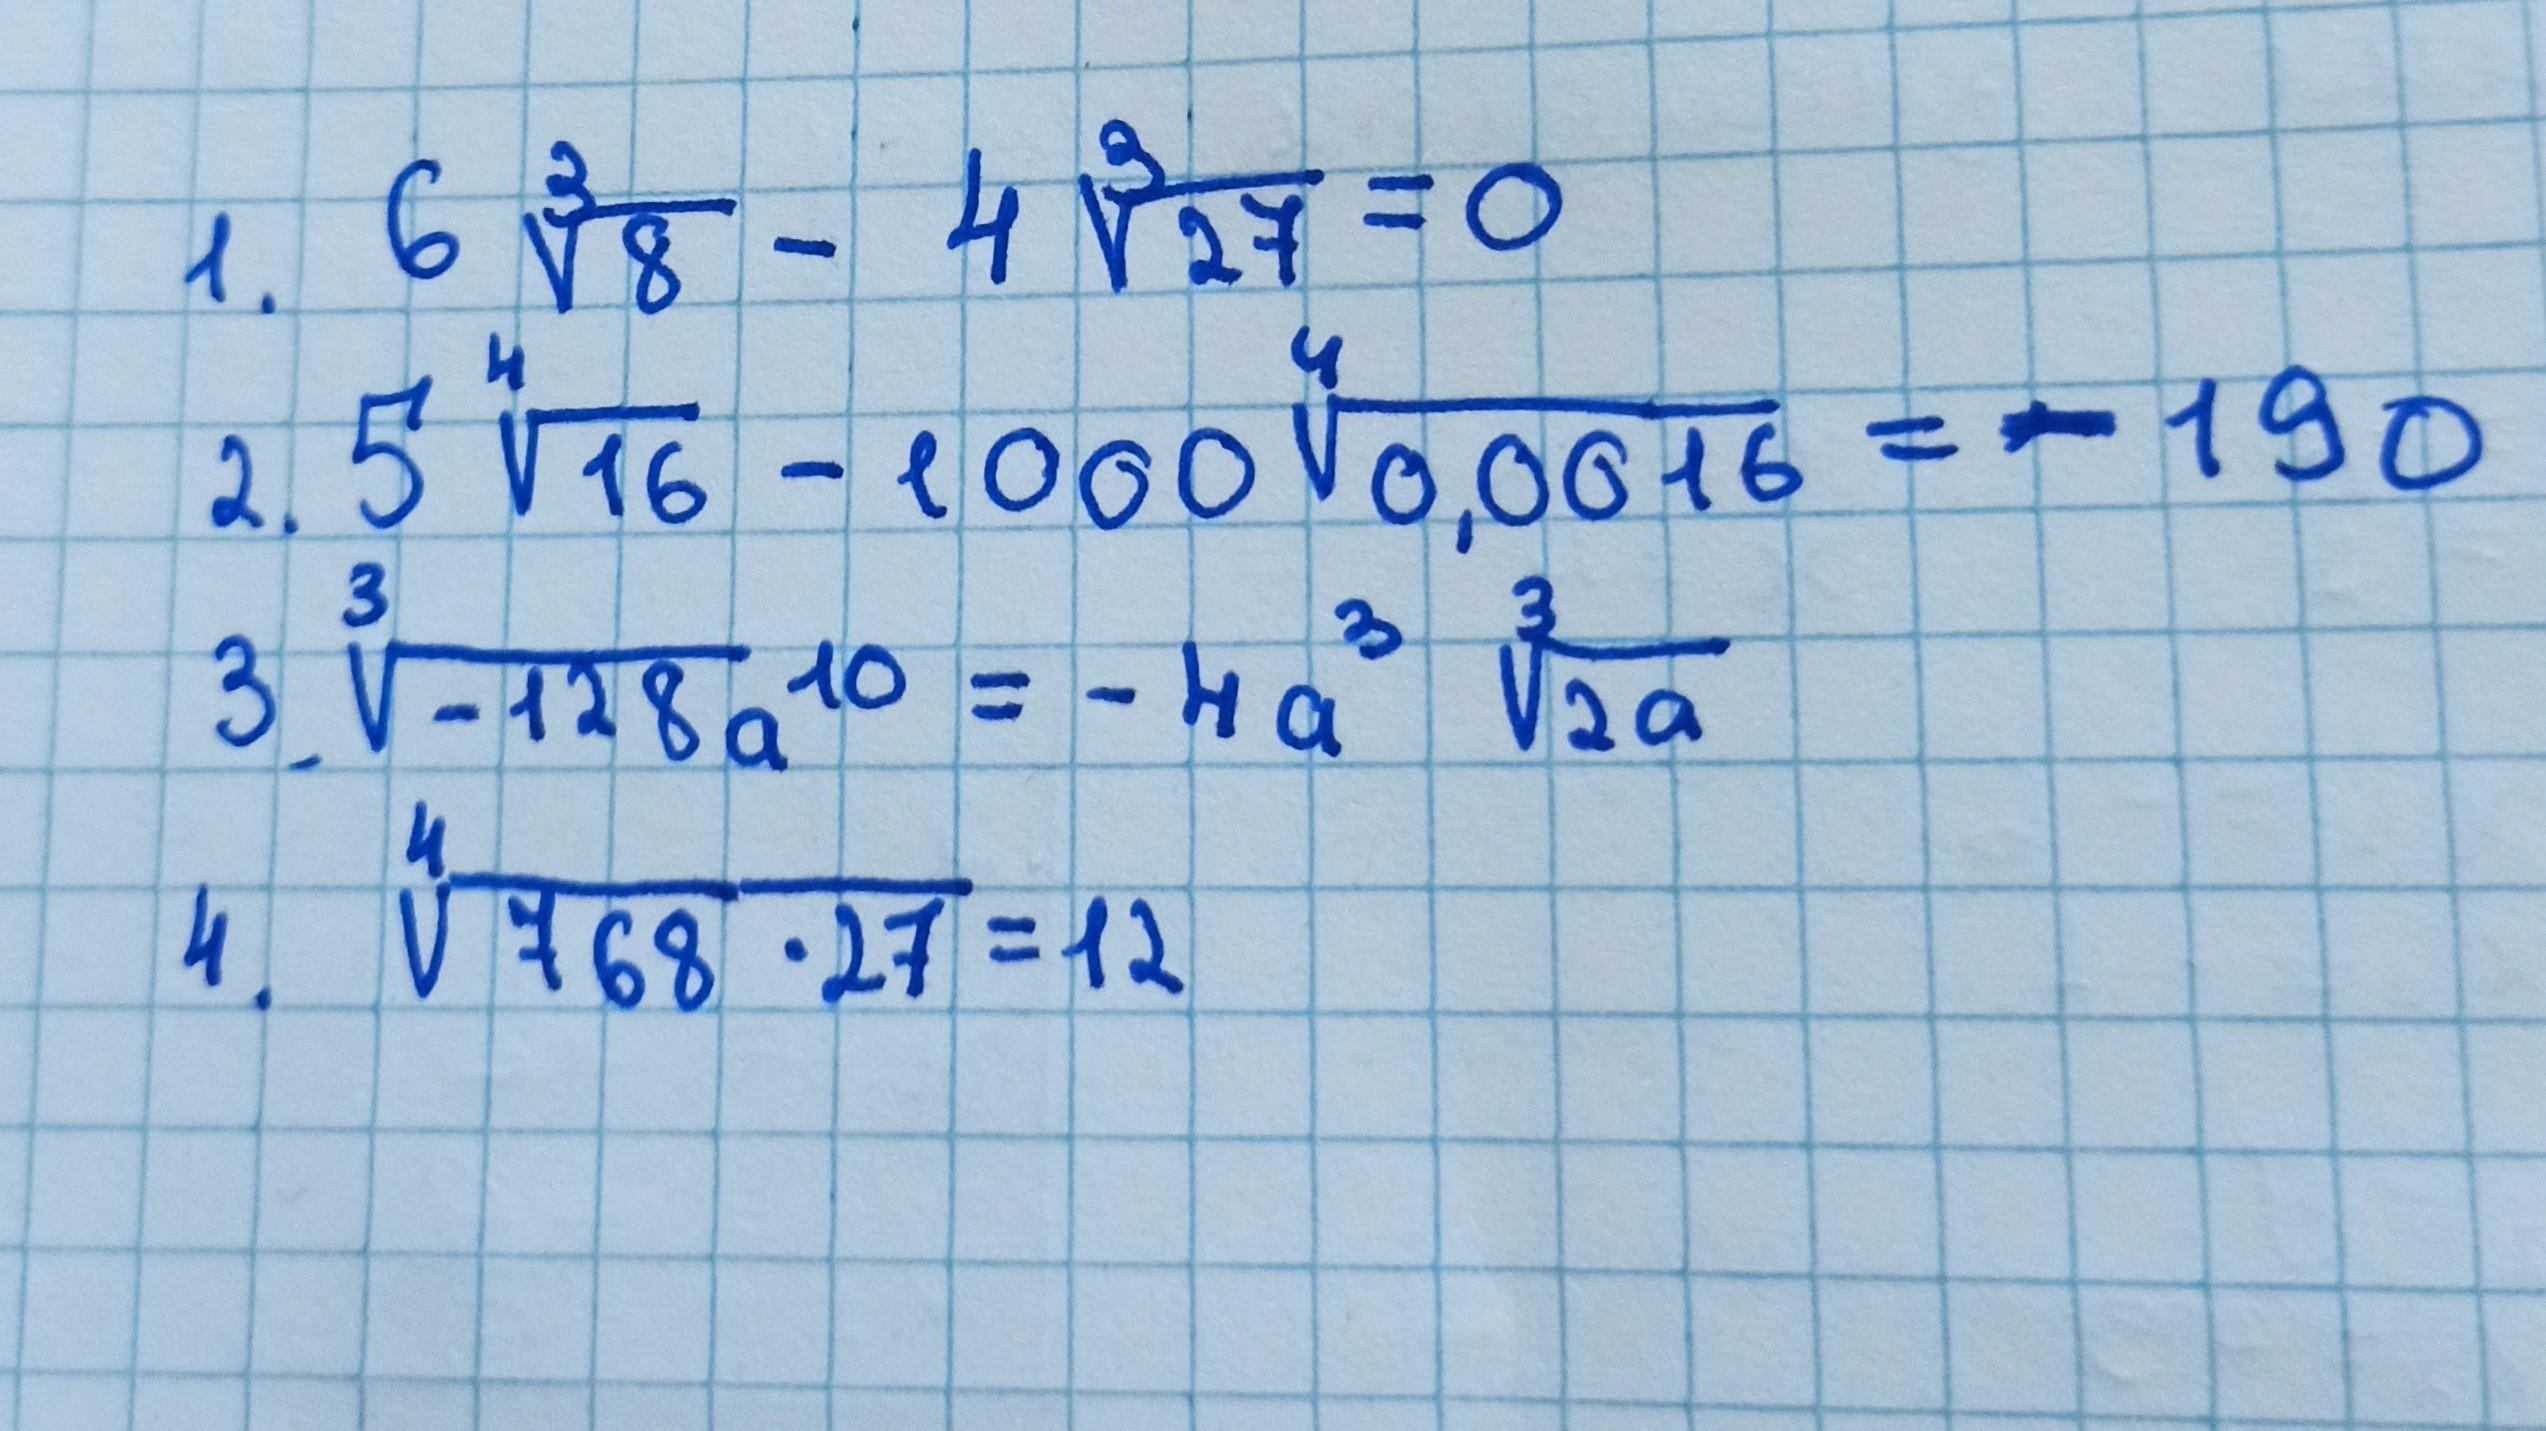 1. 6 ∛8 - 4 ∛27 = 0
2. 5 ∜16 - 1000 ∜0,0016 = - 190
3. ∛-128a¹⁰ = - 4a³ ∛2a
4. ∜768 · 27 = 12